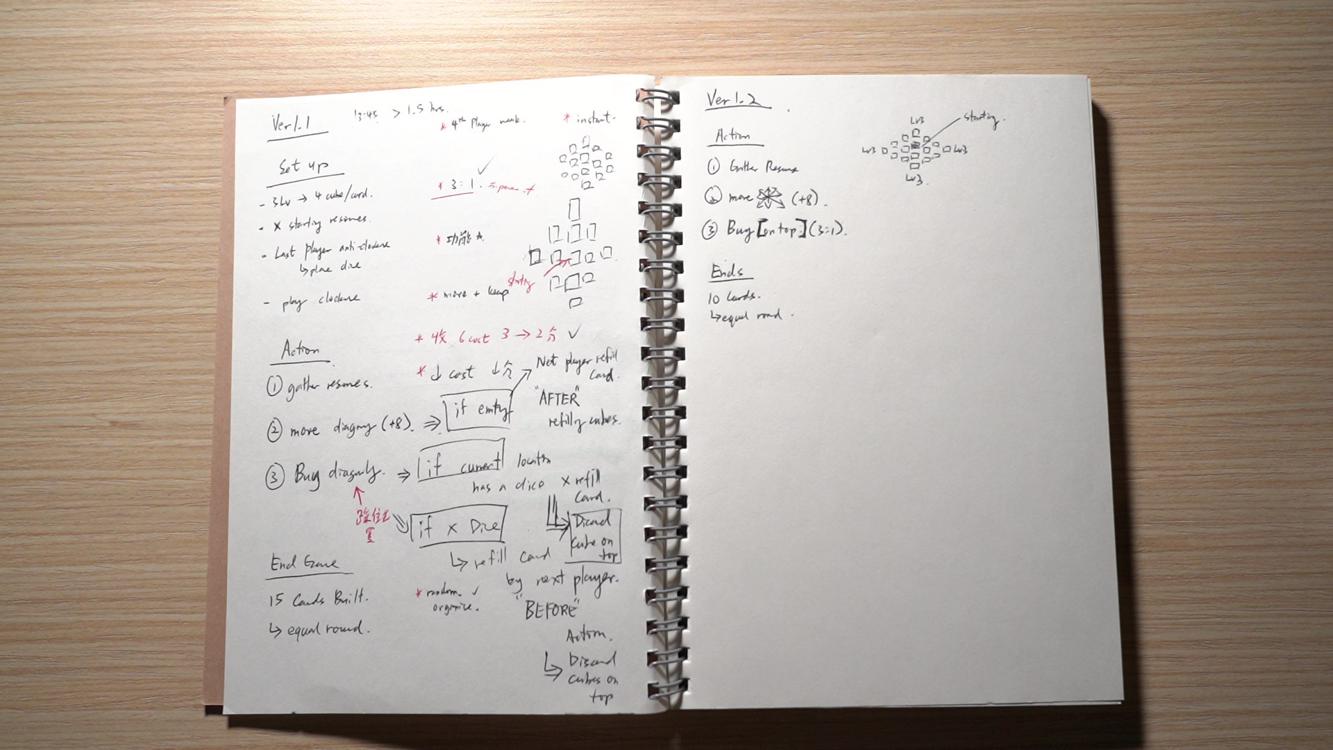 Ver 1.1
> 1.5 hrs.
* 4th Player weak.
* instant.
Set up
- 3 Lv → 4 cube/card.
- × starting resources.
- Last Player anti-clockwise
↳ place dice
- play clockwise
* 3:1.
* 功能
* move + keep
starting
* 4分 6 cost 3 → 2分 ✓
* ↓ cost ↓分
Action
① gather resources.
② move diagonally (+8). ⇒ if empty
→ Next player refill
card.
"AFTER"
refilling cubes.
③ Buy diagonally. ⇒ if current location
has a dice × refill
card.
Discard
cube on
top
位置
if × Dice
↳ refill card
by next player.
"BEFORE"
Action.
↳ Discard
cubes on
top
* random ✓
organise.
End Game
15 Cards Built.
↳ equal round.
Ver 1.2
Action
① Gather Resource
② move (+8).
③ Buy [on top] (3:1).
Ends
10 Cards.
↳ equal round.
Lv3
starting.
Lv3
Lv3
Lv3.